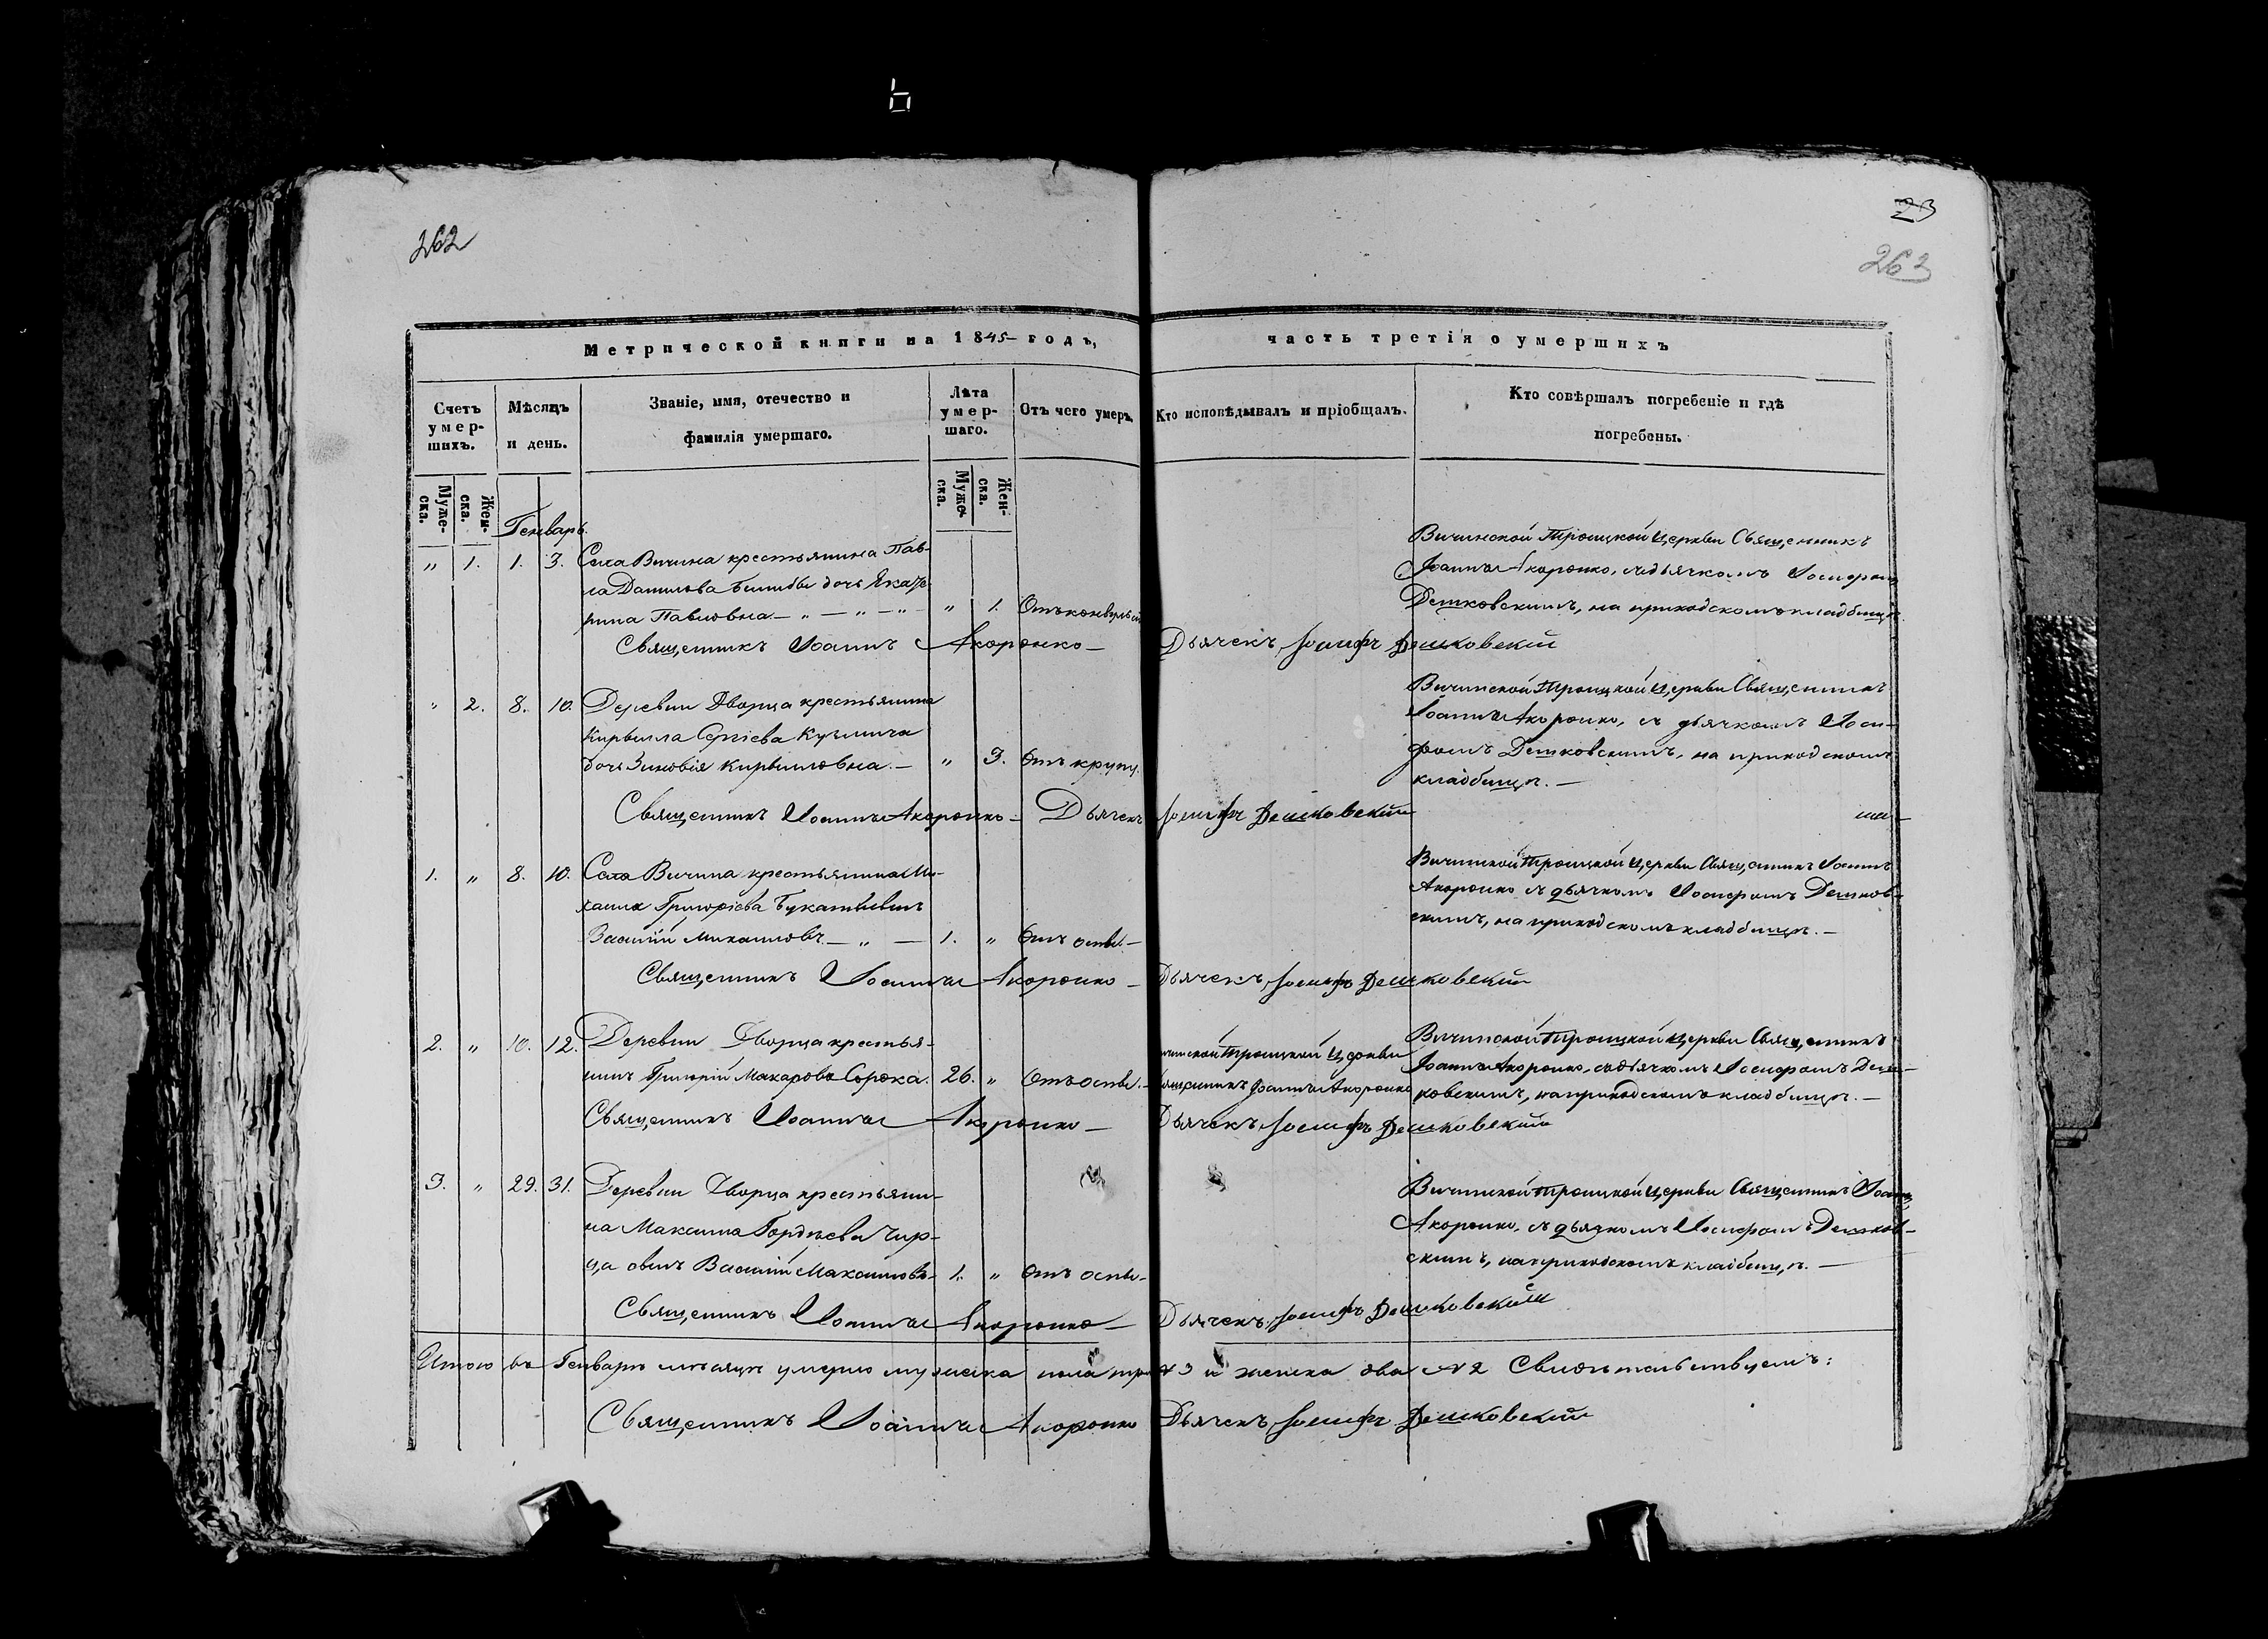 262
23
262
Метрической книги на 1845 годъ,
часть третія о умершихъ
Счетъ умер-шихъ.
Мѣсяцъ и день.
Званіе, имя, отечество и
фамилія умершаго.
Лѣта умер-шаго.
Отъ чего умеръ.
Кто исповѣдывалъ и пріобщалъ.
Кто совѣршалъ погребеніе и гдѣ
погребены.
Муже-ска.
Жен-ска.
Муже-ска.
Жен-ска.
Генварь.
„ 1. 1. 3. Села Вичина крестьянина Пав-
ла Данилова дочь Екате
рина Павловна — „ — „ — „ — „ 1. Отъ конвульсій
Вичинской Троицкой Церкви Священникъ
Іоаннъ Акоронко, съ дьячкомъ Іосифомъ
Дешковскимъ, на приходскомъ кладбищѣ.
Священникъ Іоаннъ Акоронко — Дьячекъ Іосифъ Дешковскій
„ 2. 8. 10. Деревни Дворца крестьянина
Кирьилла Сергіева Кузмича
дочь Зиновія Кирьилловна. — „ 3. Отъ крупу.
Вичинской Троицкой Церкви Священникъ
Іоаннъ Акоронко, съ дьячкомъ Іоси-
фомъ Дешковскимъ, на приходскомъ
кладбищѣ. —
Священникъ Іоаннъ Акоронко — Дьячекъ Іосифъ Дешковскій
1. „ 8. 10. Села Вичина крестьянина Ми-
хаила Григорієва
Василій Михаиловъ — „ — 1. „ Отъ оспы. —
Вичинской Троицкой Церкви Священникъ Іоаннъ
Акоронко съ дьячкомъ Іосифомъ Дешков-
скимъ, на приходскомъ кладбищѣ. —
Священникъ Іоаннъ Акоронко — Дьячекъ Іосифъ Дешковскій
2. „ 10. 12. Деревни Дворца крестья-
нинъ Григорій Макаровъ Сорока. 26. „ Отъ оспы. —
Троицкой Церкви
Іоаннъ Акоронко
Вичинской Троицкой Церкви Священникъ
Іоаннъ Акоронко, съ дьячкомъ Іосифомъ Деш-
ковскимъ, на приходскомъ кладбищѣ. —
Священникъ Іоаннъ Акоронко — Дьячекъ Іосифъ Дешковскій
3. „ 29. 31. Деревни Дворца крестьяни-
на Максима Гордѣева Чир-
ца сынъ Василій Максимовъ 1. „ Отъ оспы. —
Вичинской Троицкой Церкви Священникъ Іоаннъ
Акоронко, съ дьячкомъ Іосифомъ Дешков-
скимъ, на приходскомъ кладбищѣ. —
Священникъ Іоаннъ Акоронко — Дьячекъ Іосифъ Дешковскій
Итого въ Генварѣ мѣсяцѣ умерло мужеска пола три № 3 и женска два № 2 Свидѣтельствуемъ:
Священникъ Іоаннъ Акоронко Дьячекъ Іосифъ Дешковскій